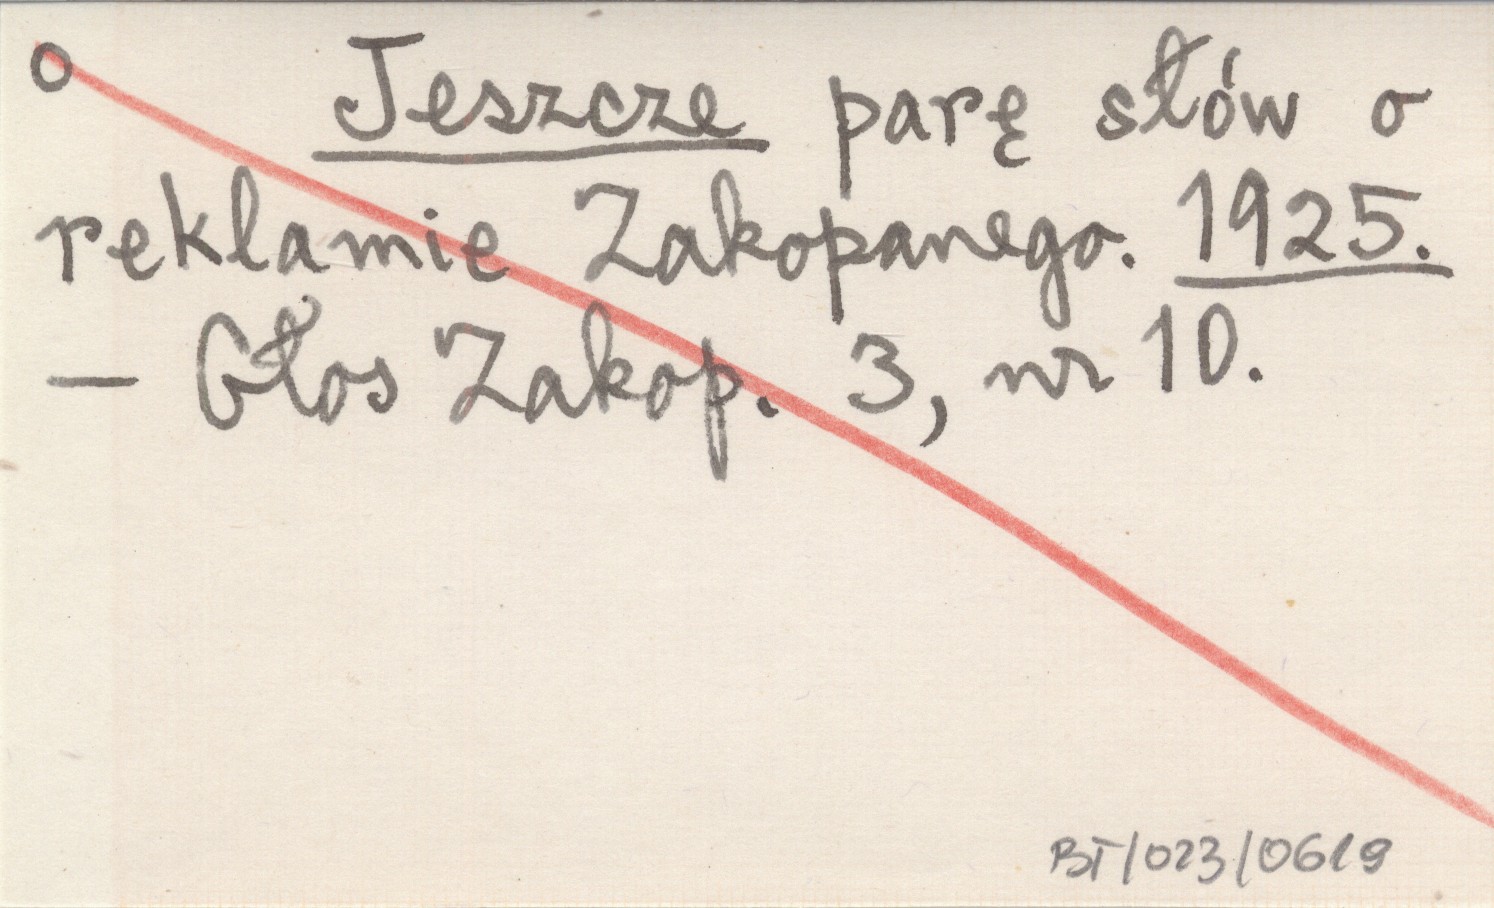 o Jeszcze parę słów o
reklamie Zakopanego. 1925.
— Głos Zakop. 3, nr 10.
BT/023/0619